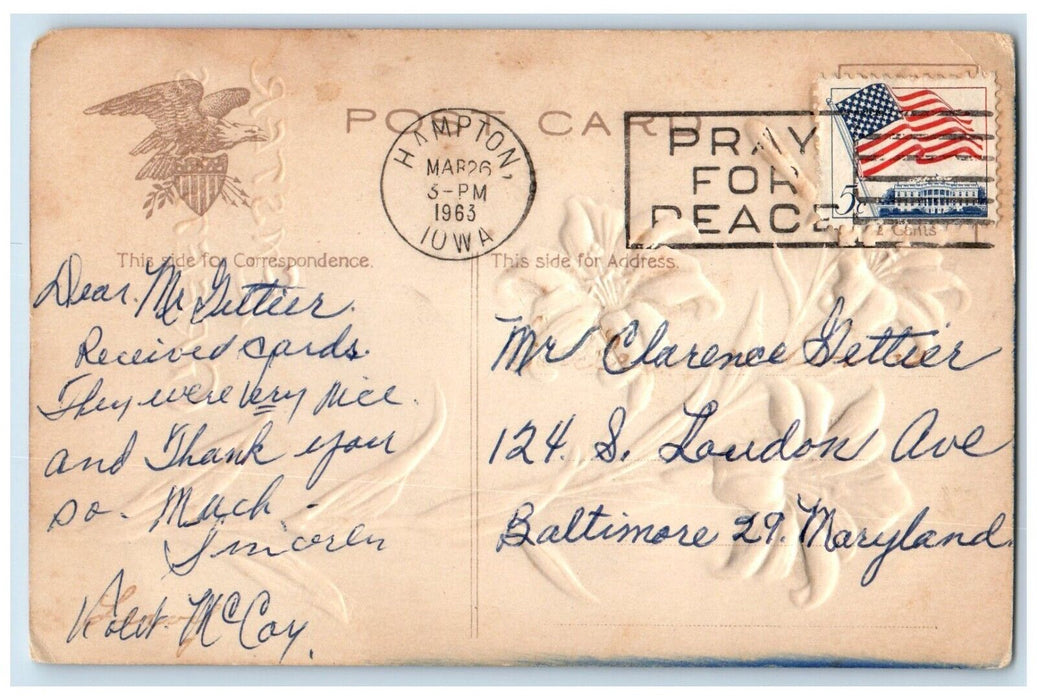 POST CARD
HAMPTON,
MAR 26
3-PM
1963
IOWA
PRAY
FOR
PEACE
5c
Cents
This side for Correspondence.
This side for Address.
Dear Mr Gettier.
Received cards.
They were very nice.
and Thank you
so. Much -
Sincerely
Robt. McCoy.
Mr Clarence Gettier
124. S. Loudon Ave
Baltimore 29. Maryland.